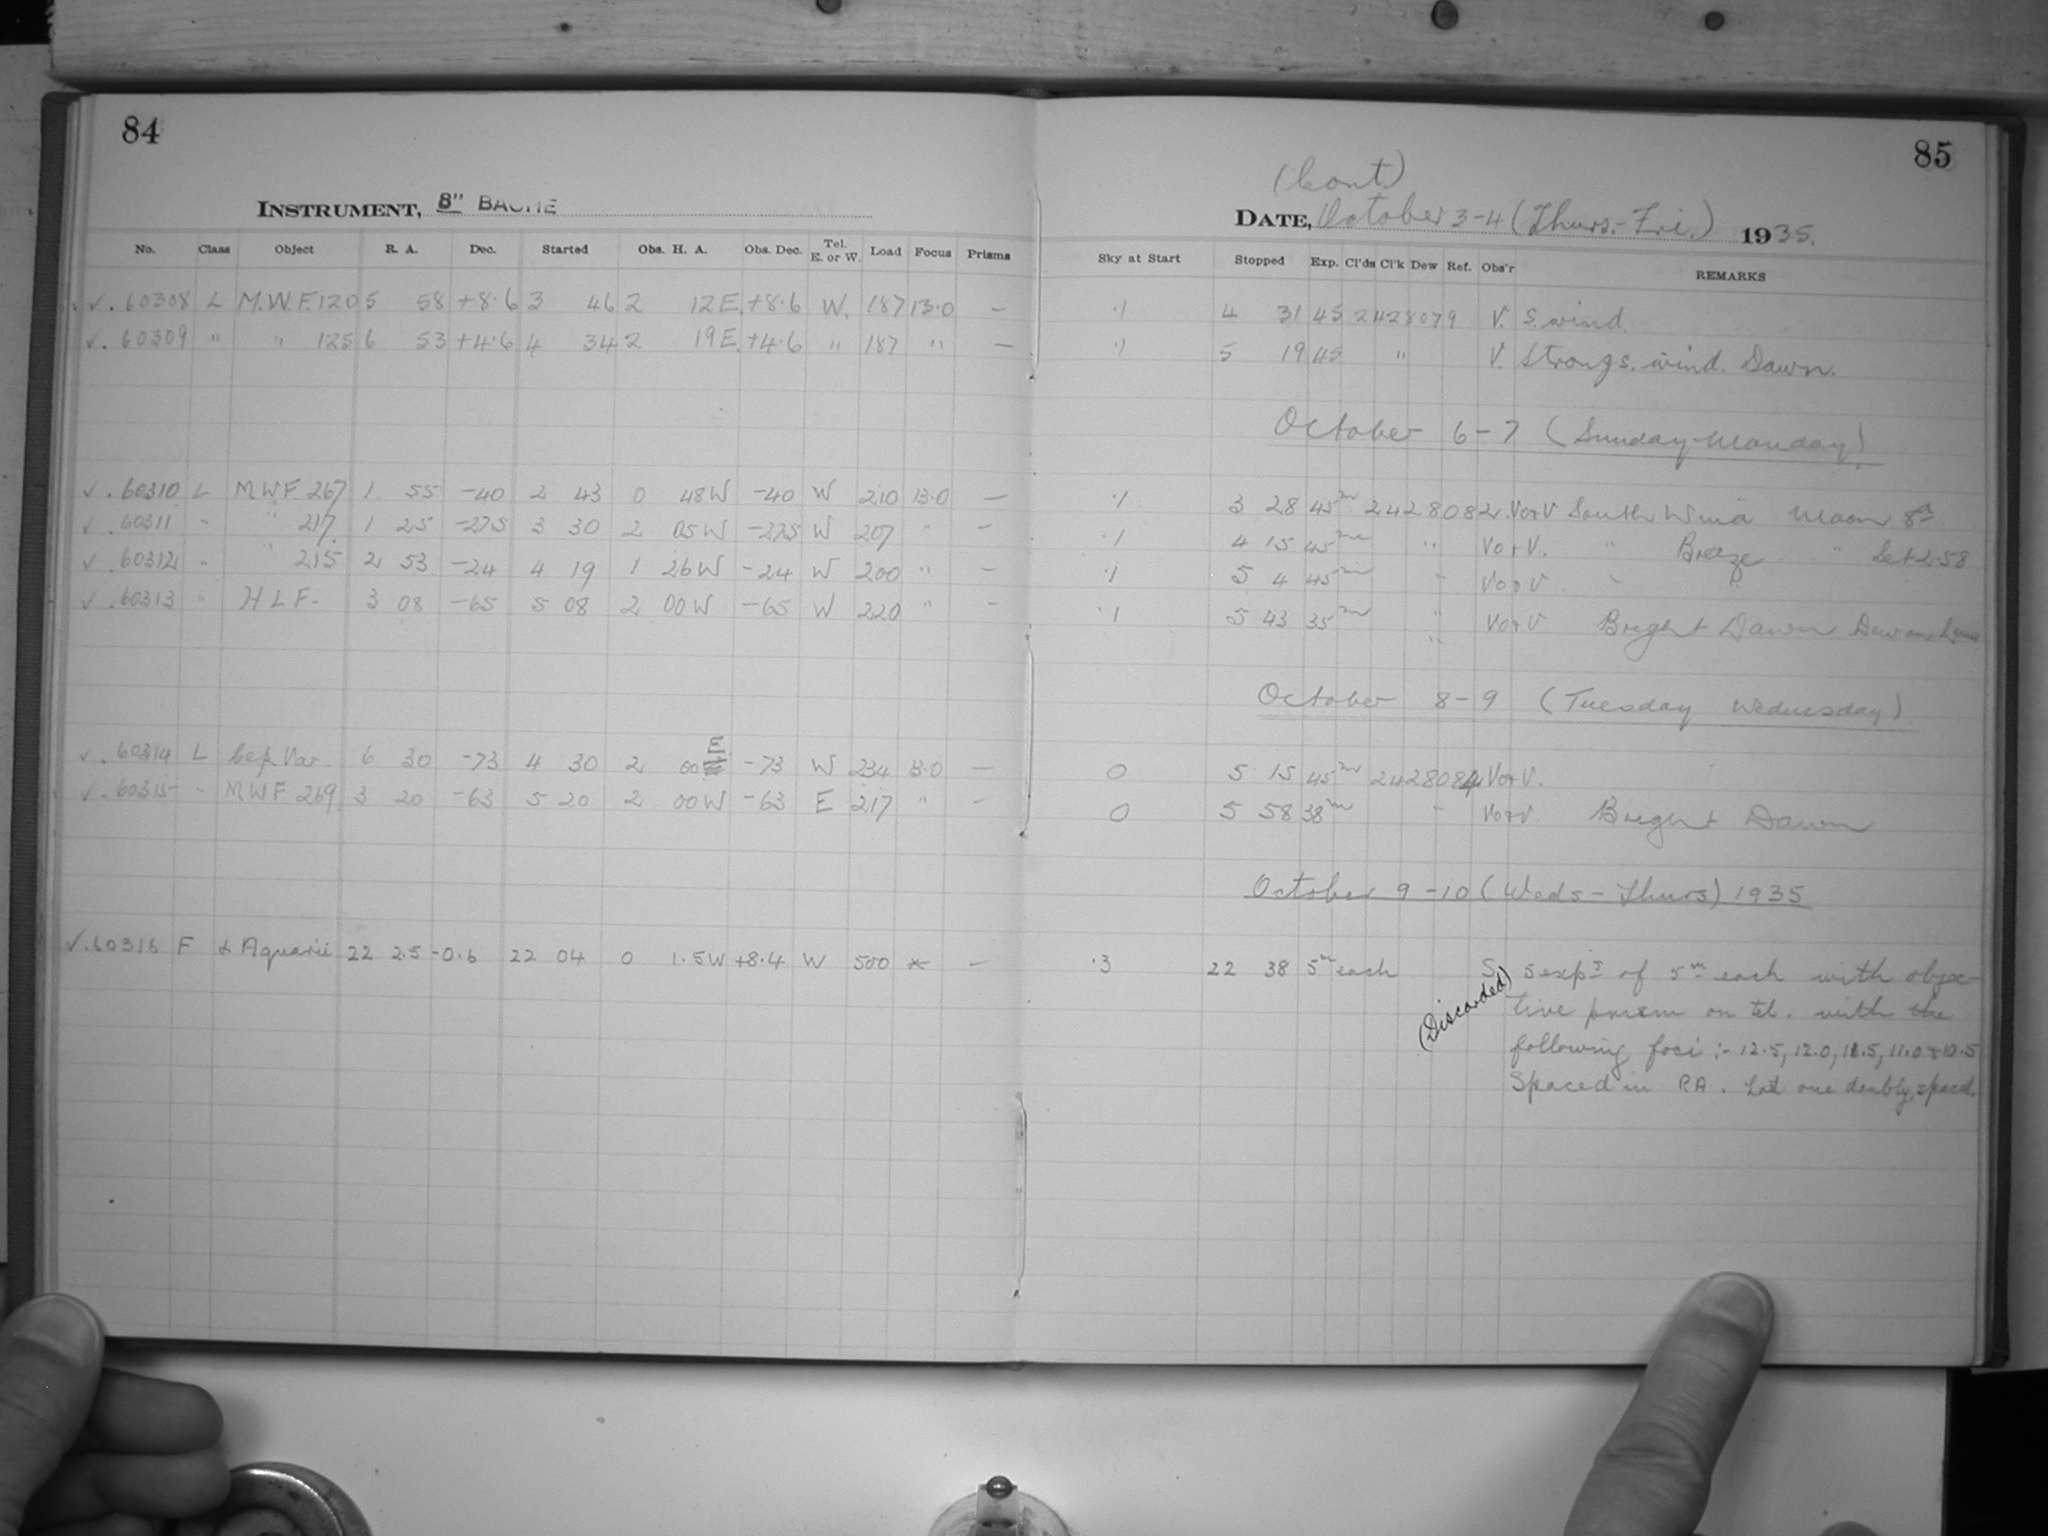 84
85
(Cont.)
INSTRUMENT, 8" BACHE
DATE, October 3-4 (Thurs.-Fri.) 1935.
No. Class Object R. A. Dec. Started Obs. H. A. Obs. Dec. Tel. E. or W. Load Focus Prisms Sky at Start Stopped Exp. Cl'ds Cl'k Dew Ref. Obs'r REMARKS
✓. 60308 L M.W.F. 120 5 58 +8.6 3 46 2 12E. +8.6 W. 187 13.0 — .1 4 31 45 2428079 V. S. wind.
✓. 60309 " " 125 6 53 +4.6 4 34 2 19E. +4.6 " 187 " — .1 5 19 45 " V. Strong s. wind. Dawn.
October 6-7 (Sunday-Monday)
✓. 60310 L MWF 267 1 55 -40 2 43 0 48W -40 W 210 13.0 — .1 3 28 45m 2428082 Vo+V South Wind Moon 8d
✓. 60311 " " 217 1 25 -27.5 3 30 2 05W -27.5 W 207 " — .1 4 15 45m " Vo+V. " Breeze " Set 2.58
✓. 60312 " " 215 2 53 -24 4 19 1 26W -24 W 200 " — .1 5 4 45m " Vo+V " "
✓. 60313 " H L F- 3 08 -65 5 08 2 00W -65 W 220 " — .1 5 43 35m " Vo+V Bright Dawn Dew on
October 8-9 (Tuesday Wednesday)
✓. 60314 L Cep. Var. 6 30 -73 4 30 2 00 E -73 W 234 13.0 — 0 5 15 45m 2428084 Vo+V.
✓. 60315 " MWF 269 3 20 -63 5 20 2 00W -63 E 217 " — 0 5 58 38m " Vo+V. Bright Dawn
October 9-10 (Weds-Thurs) 1935
✓. 60316 F α Aquarii 22 2.5 -0.6 22 04 0 1.5W +8.4 W 500 * — .3 22 38 5m each S. 5 exps of 5m each with objec-
(Discarded) tive prism on tel. with the
following foci :- 12.5, 12.0, 11.5, 11.0 & 10.5
Spaced in RA. Last one doubly spaced.